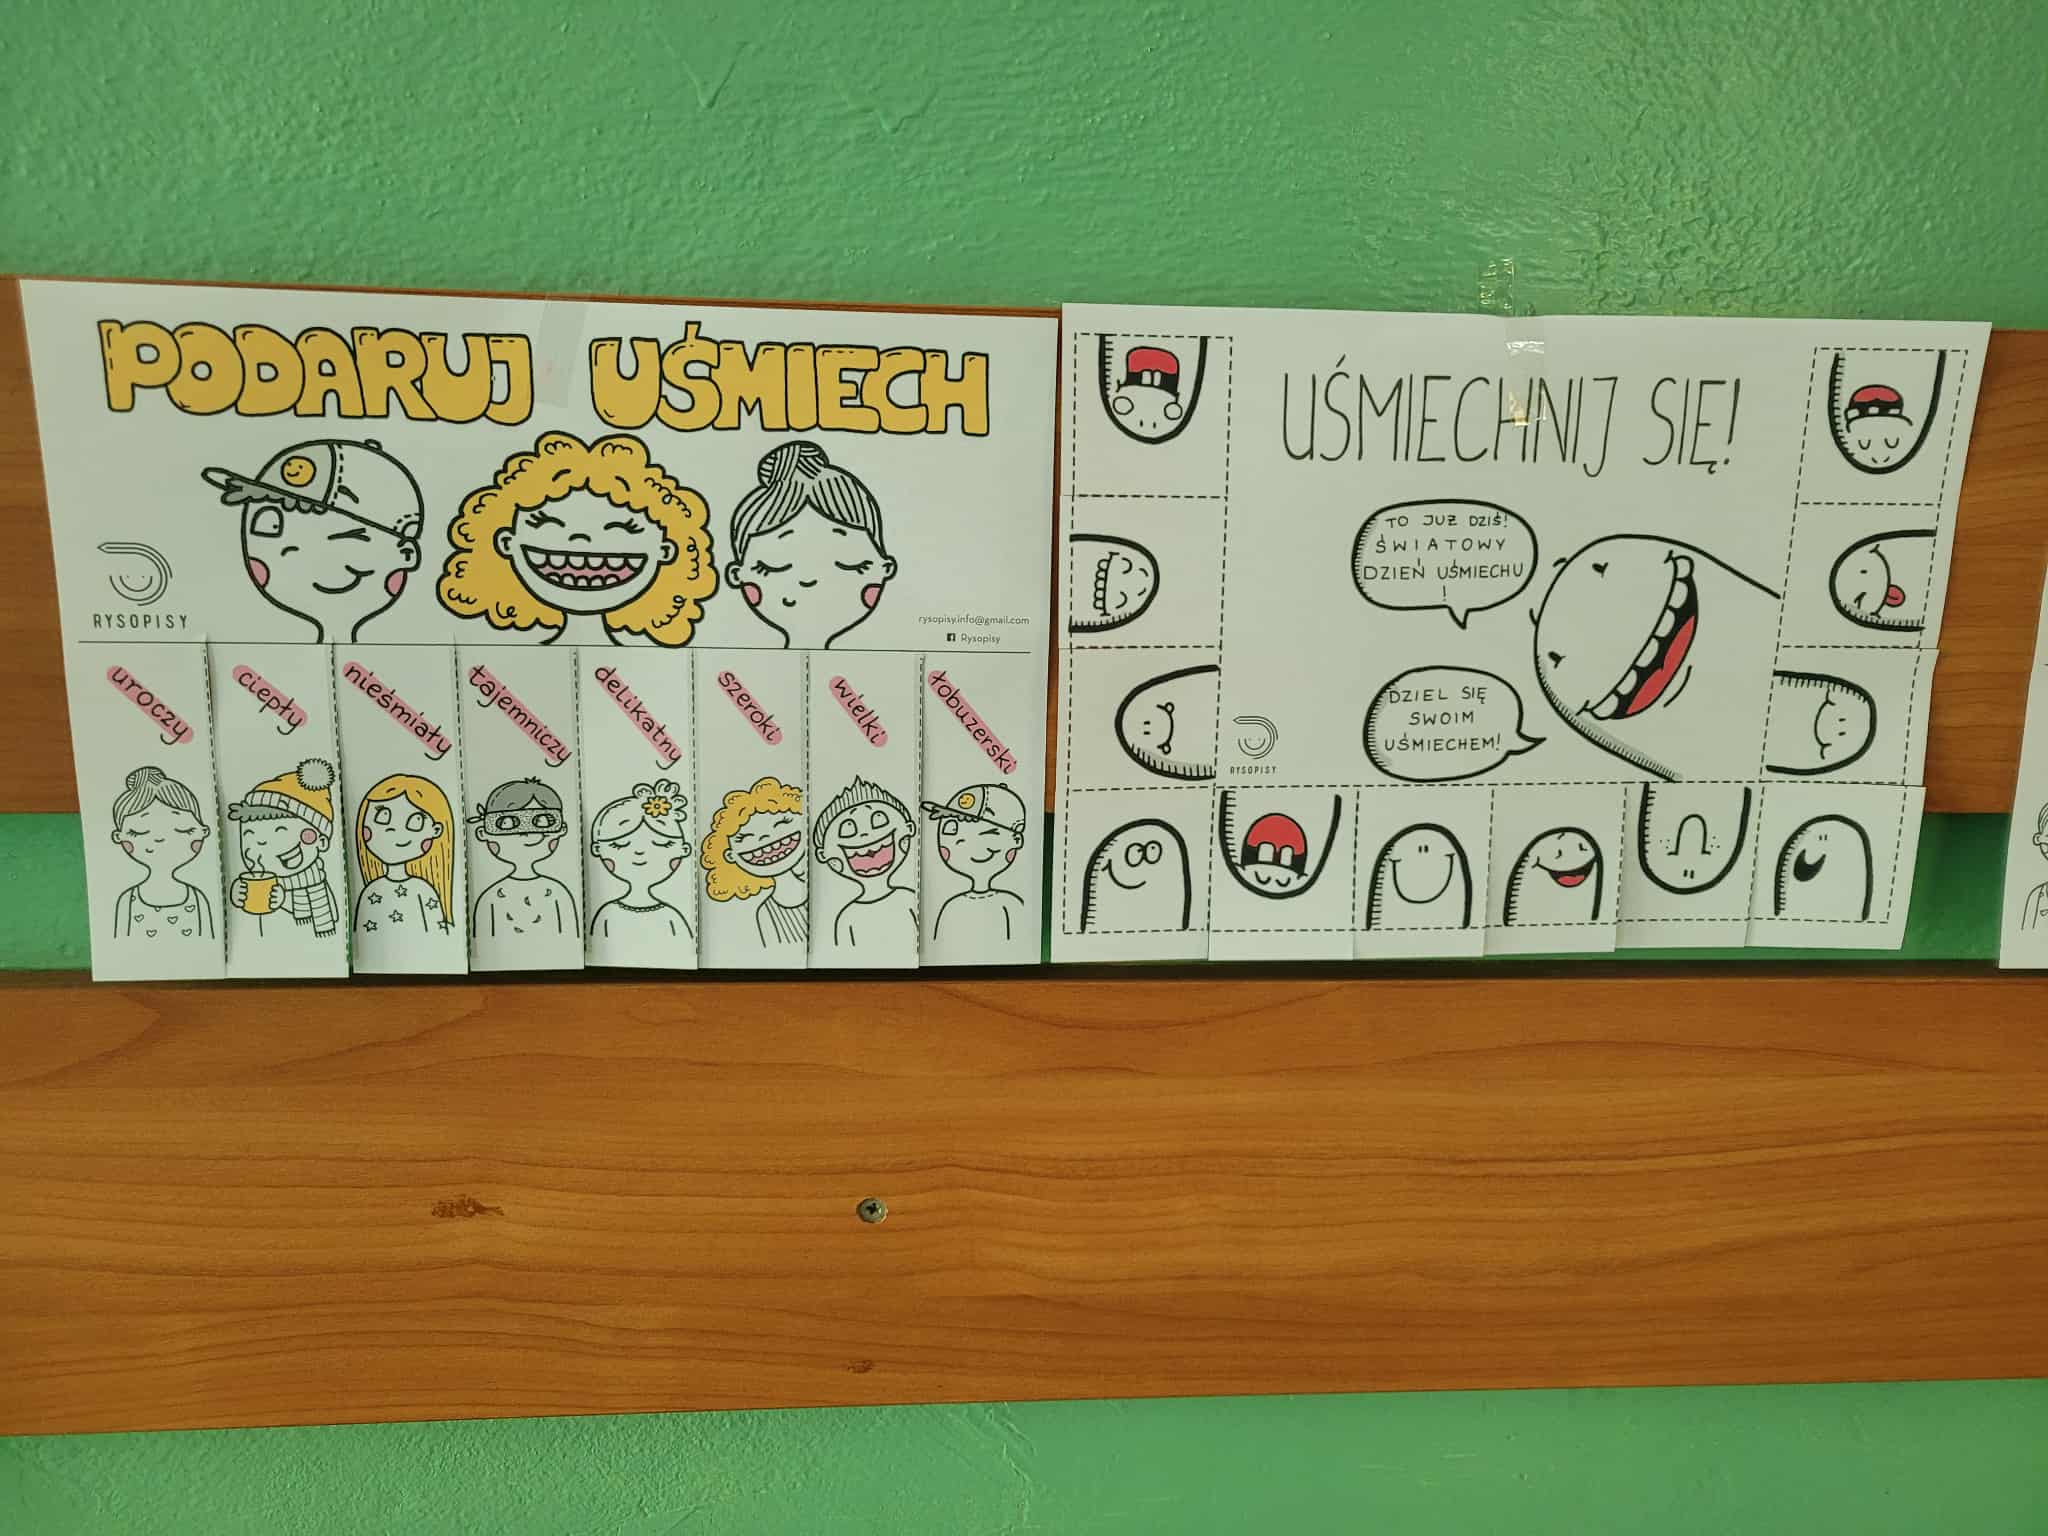 PODARUJ UŚMIECH
RYSOPISY
rysopisy.info@gmail.com
Rysopisy
uroczy
ciepły
nieśmiały
tajemniczy
delikatny
szeroki
wielki
łobuzerski
UŚMIECHNIJ SIĘ!
TO JUŻ DZIŚ!
ŚWIATOWY
DZIEŃ UŚMIECHU
!
DZIEL SIĘ
SWOIM
UŚMIECHEM!
RYSOPISY